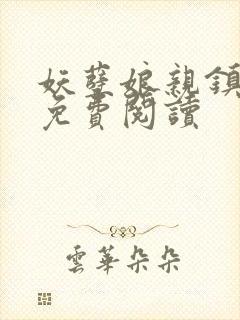 妖孽娘親鎮
免費閱讀
雲華朵朵